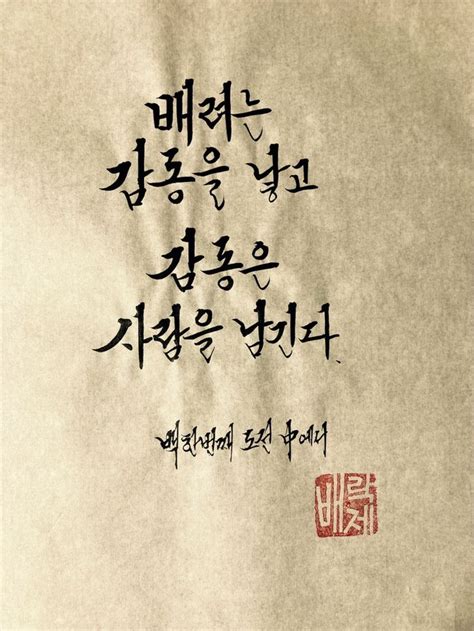 배려는
감동을 낳고
감동은
사람을 남긴다.
백한번째 도전 中에다
배락제